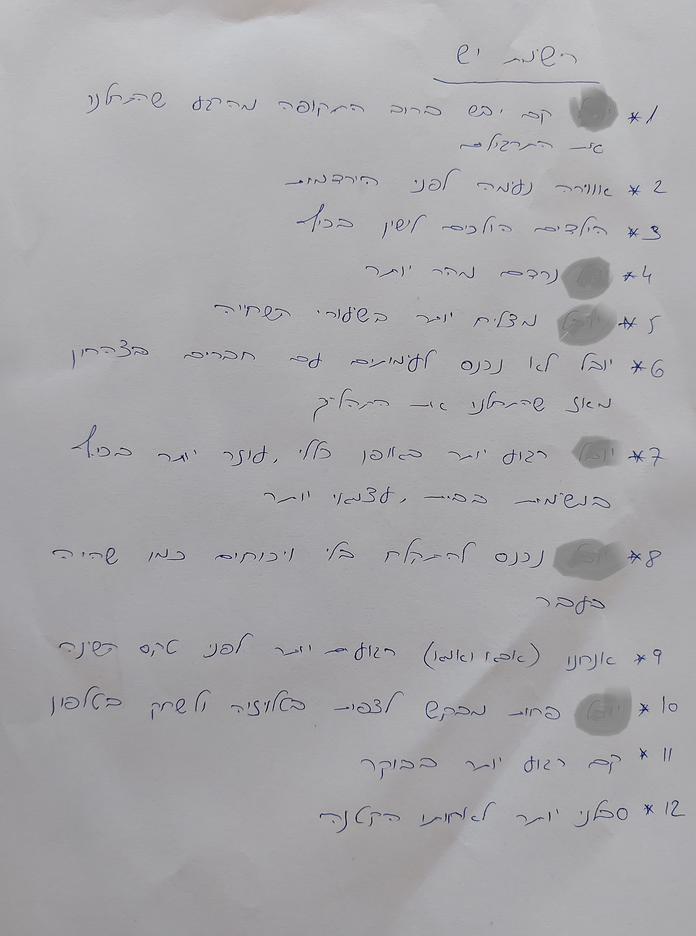 רשימת יש
*1 קם יבש ברוב התקופה מהרגע שהתחלנו
את התרגילים
*2 אווירה נעימה לפני הירדמות
*3 הילדים הולכים לישון בכיף
*4 נרדם מהר יותר
*5 מצליח יותר בשיעורי השחייה
*6 יובל לא נכנס לעימותים עם חברים בצהרון
מאז שהתחלנו את התהליך
*7 רגוע יותר באופן כללי, עוזר יותר בכיף
במשימות בבית, עצמאי יותר
*8 נכנס להתקלח בלי ויכוחים כמו שהיה
בעבר
*9 אנחנו (אבא ואמא) רגועים יותר לפני טקס השינה
*10 פחות מבקש לצפות בטלויזיה ולשחק בטלפון
*11 קם רגוע יותר בבוקר
*12 סבלני יותר לאחותו הקטנה